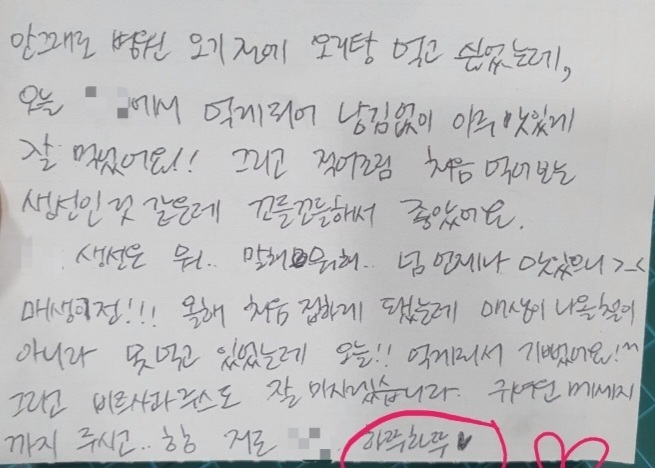 안그래도 병원 오기 전에 오리탕 먹고 싶었는데,
오늘 에서 먹게되어 남김없이 아주 맛있게
잘 먹었어요!! 그리고 처음 먹어보는
생선인 것 같은데 꼬들꼬들해서 좋았어요.
생선은 뭐.. 말해 뭐해.. 넘 언제나 맛있으니 >_<
매생이전!!! 올해 처음 접하게 됐는데 매생이 나올 철이
아니라 못먹고 있었는데 오늘!! 먹게되서 기뻤어요!^^
그리고 도 잘 마시겠습니다. 귀여운 메세지
까지 주시고.. 항 저도 . 하뚜하뚜